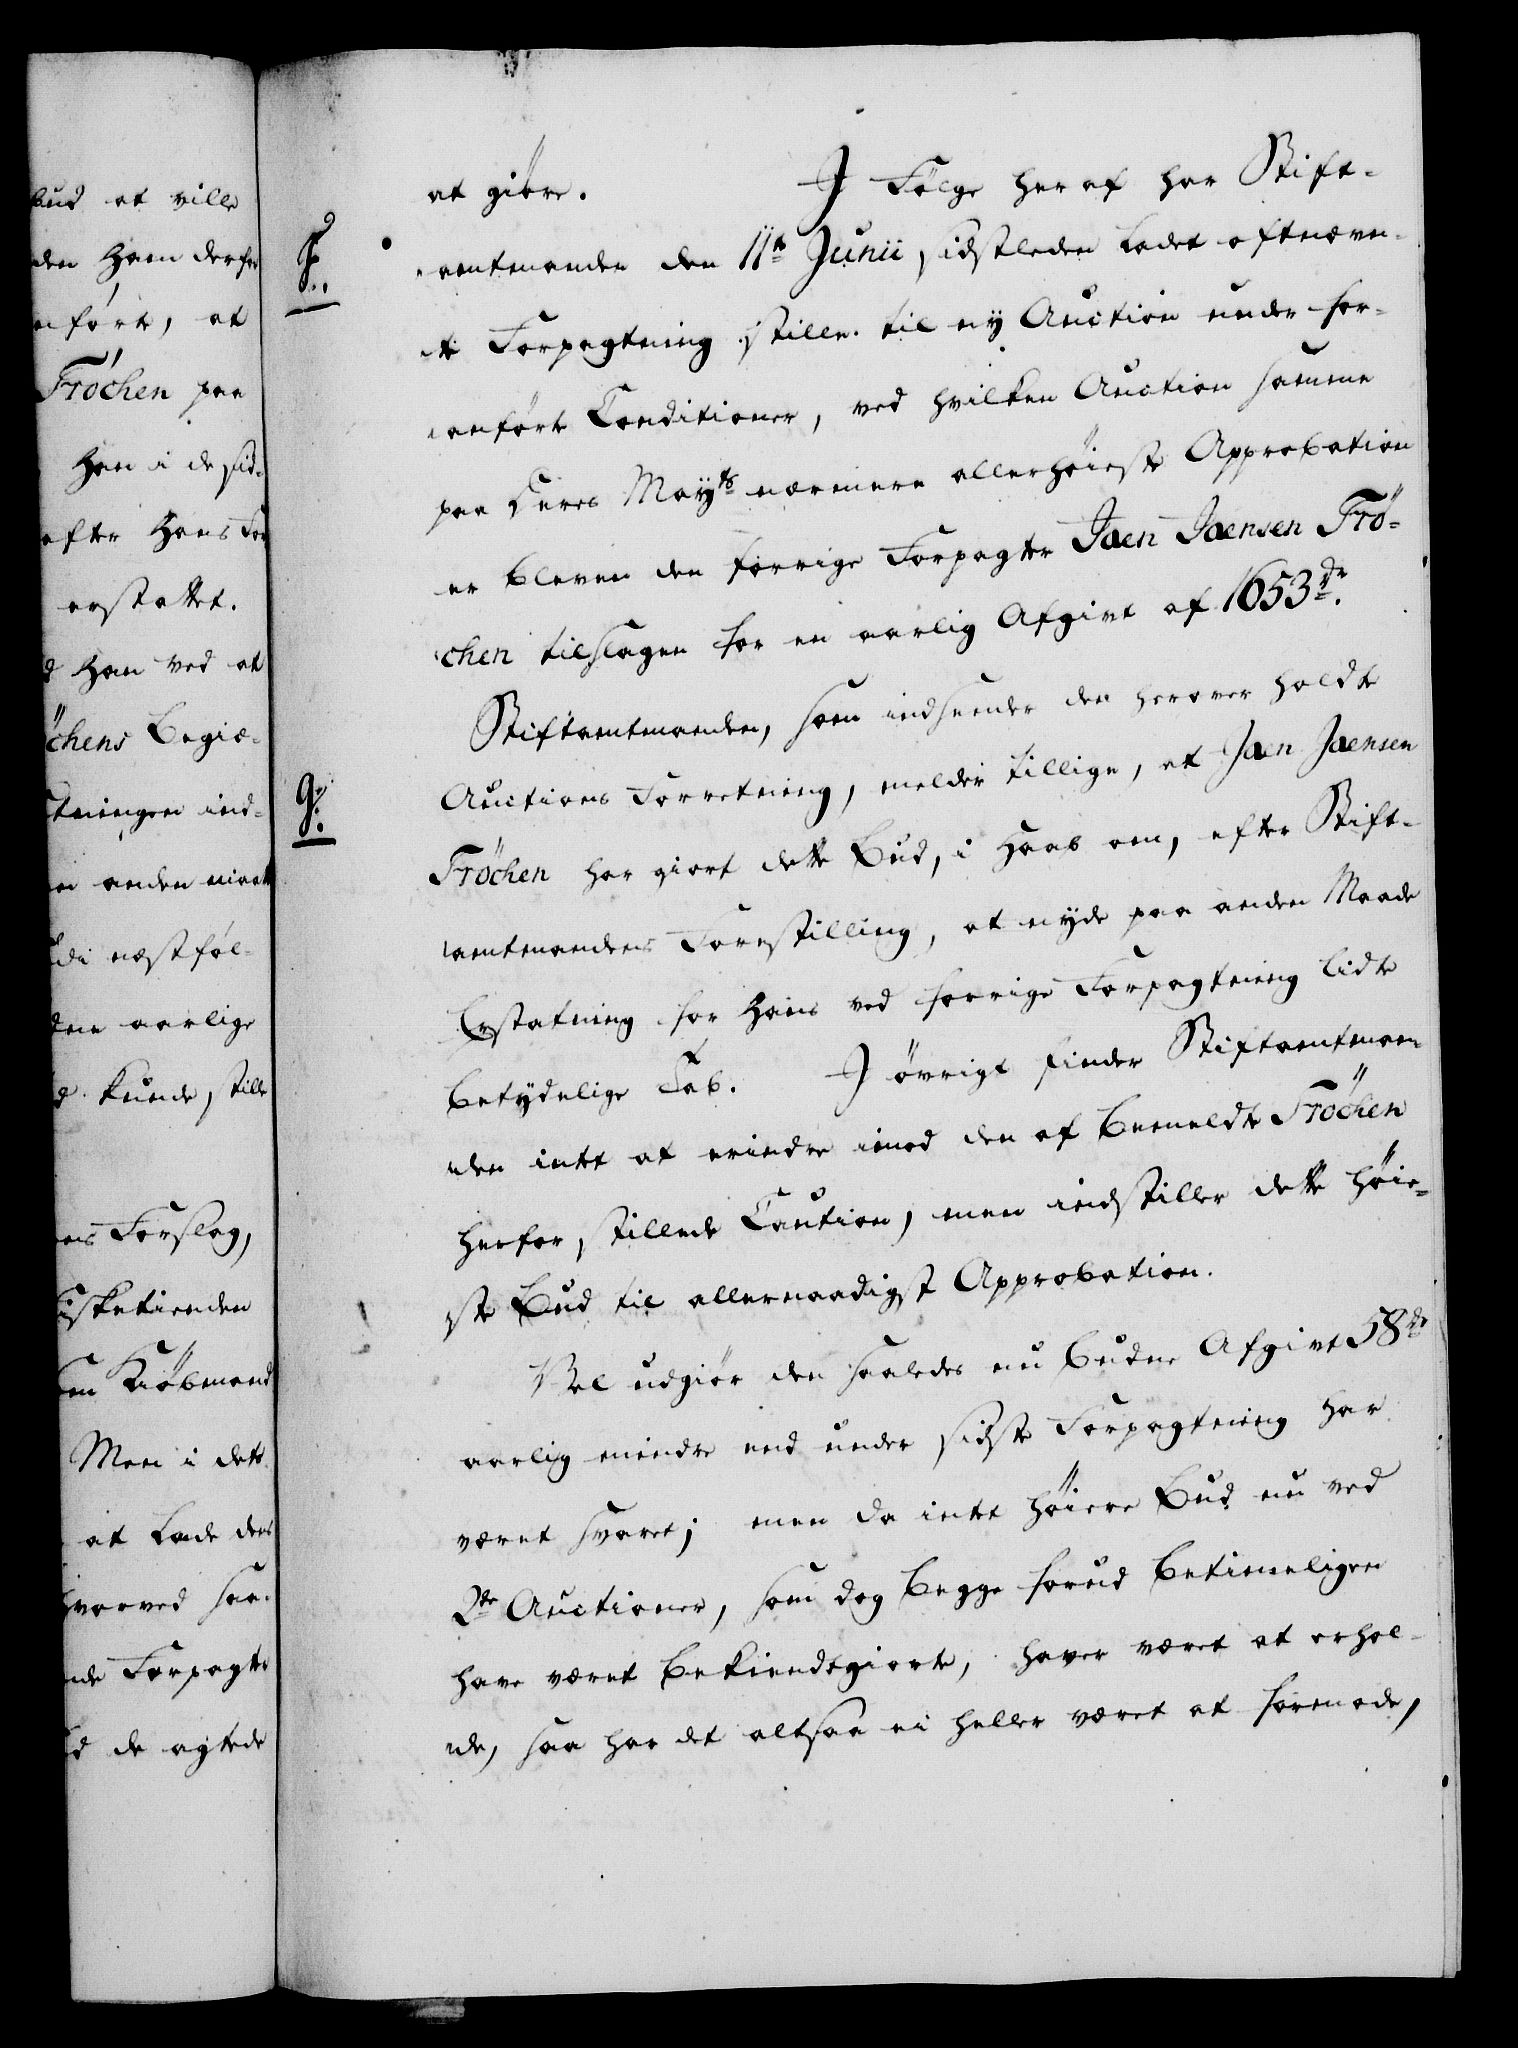 bud at ville
den ham derfor
nfört, at
Fröchen paa
han i de sid-
efter hans For
erstattet.
d han ved at
öchens Begiæ-
tningen ind-
en anden miatt
di næstföl-
den aarlige
d kunde, stille
ens Forslag,
Fisketienden
ken Kiöbmand
Men i dette
at lade des
hvorved saa-
nde Forpagter
d de agtede
at giöre. I Fölge her af har Stift-
F.
amtmanden den 11te Junii sidstleden ladet oftnævn-
te Forpagtning stille til ny Auction under for-
anförte Conditioner, ved hvilken Auction samme
paa Deres Mayts nærmere allerhöieste Approbation
er bleven den forrige Forpagter Jaen Jaensen Frö-
chen tilslagen for en aarlig Afgivt af 1653 rdr.
Stiftamtmanden, som indsender den herover holdte
G.
Auctions Forretning, melder tillige, at Jaen Jaensen
Fröchen har giort dette Bud, i Haab om, efter Stift-
amtmandens Forestilling, at nyde paa anden Maade
Erstatning for hans ved forrige Forpagtning lidte
betydelige Tab. I övrigt finder Stiftamtman-
den intet at erindre imod den af bemeldte Fröchen
herfor stillede Caution, men indstiller dette höie-
ste Bud til allernaadigst Approbation.
Vel udgiör den saaledes nu budne Afgivt 58 rdr
aarlig mindre end under sidste Forpagtning har
været svaret; men da intet höiere Bud nu ved
2de Auctioner, som dog begge forud betimeligen
have været bekiendtgiorte, haver været at erhol-
de, saa har det altsaa ei heller været at formode,